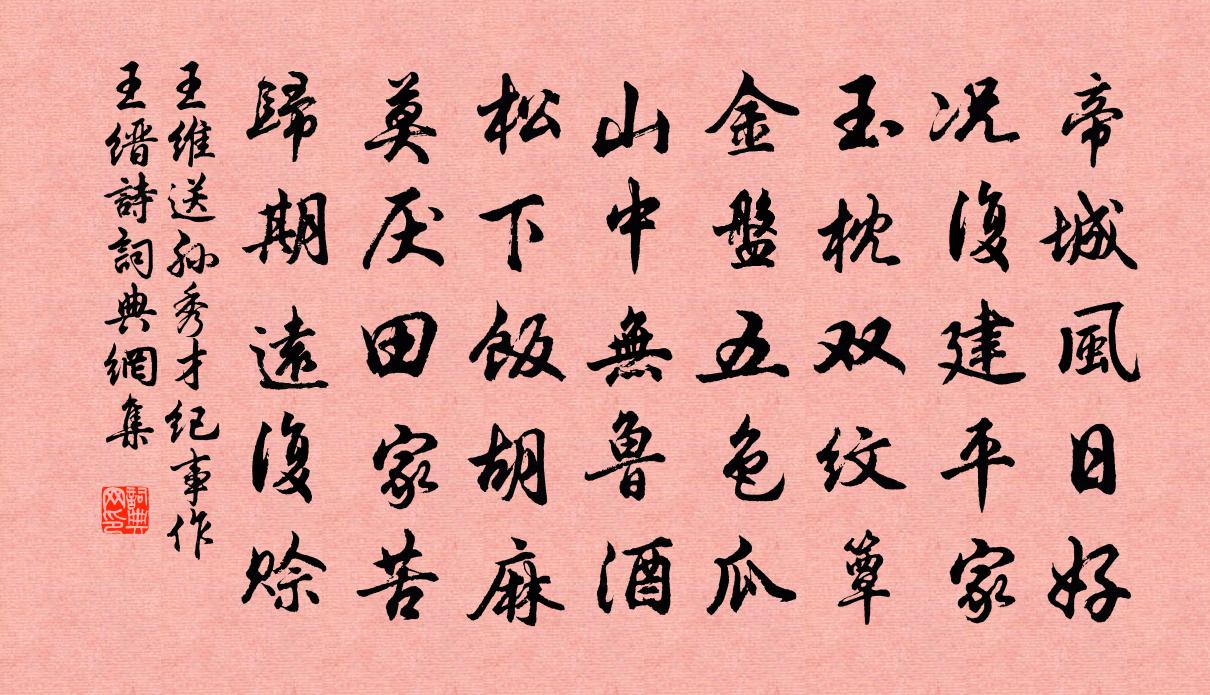 帝城風日好
况復建平家
玉枕双紋簟
金盤五色瓜
山中無魯酒
松下飯胡麻
莫厌田家苦
歸期遠復賒
王維送孙秀才纪事作
王縉詩詞典網集
詞典网印